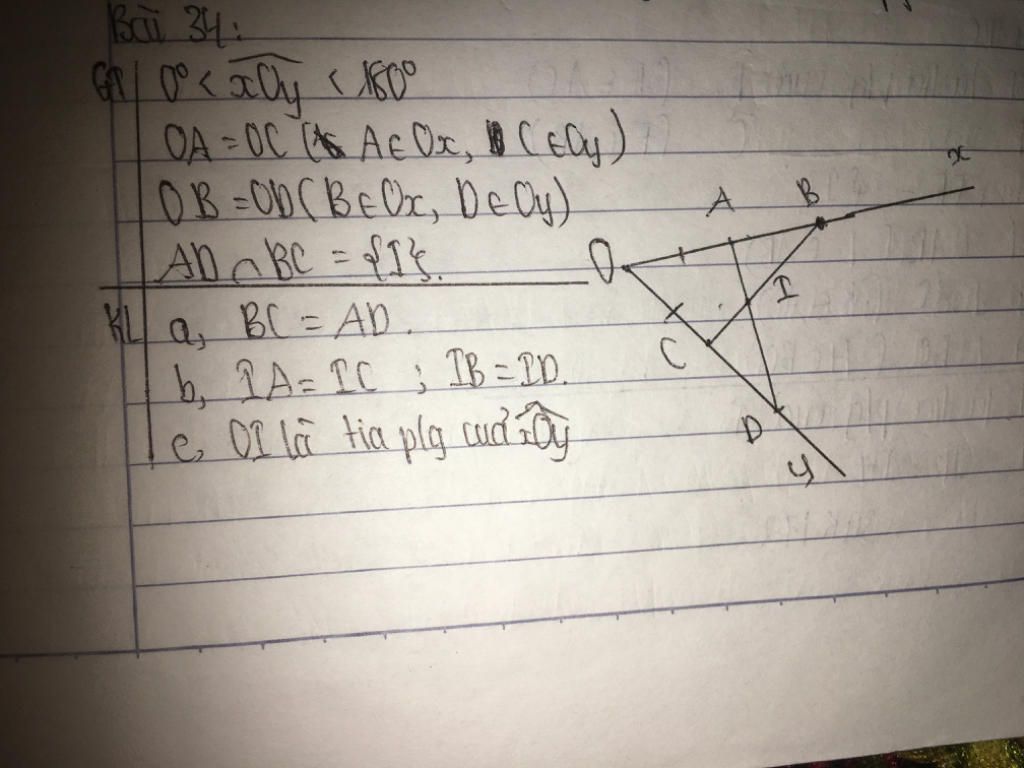 Bài 34:
GT 0° < xOy < 180°
OA = OC ( A ∈ Ox, C ∈ Oy)
OB = OD ( B ∈ Ox, D ∈ Oy)
AD ∩ BC = {I}.
KL a, BC = AD.
b, IA = IC ; IB = ID.
c, OI là tia plg cuả xOy
x
B
A
O
I
C
D
y